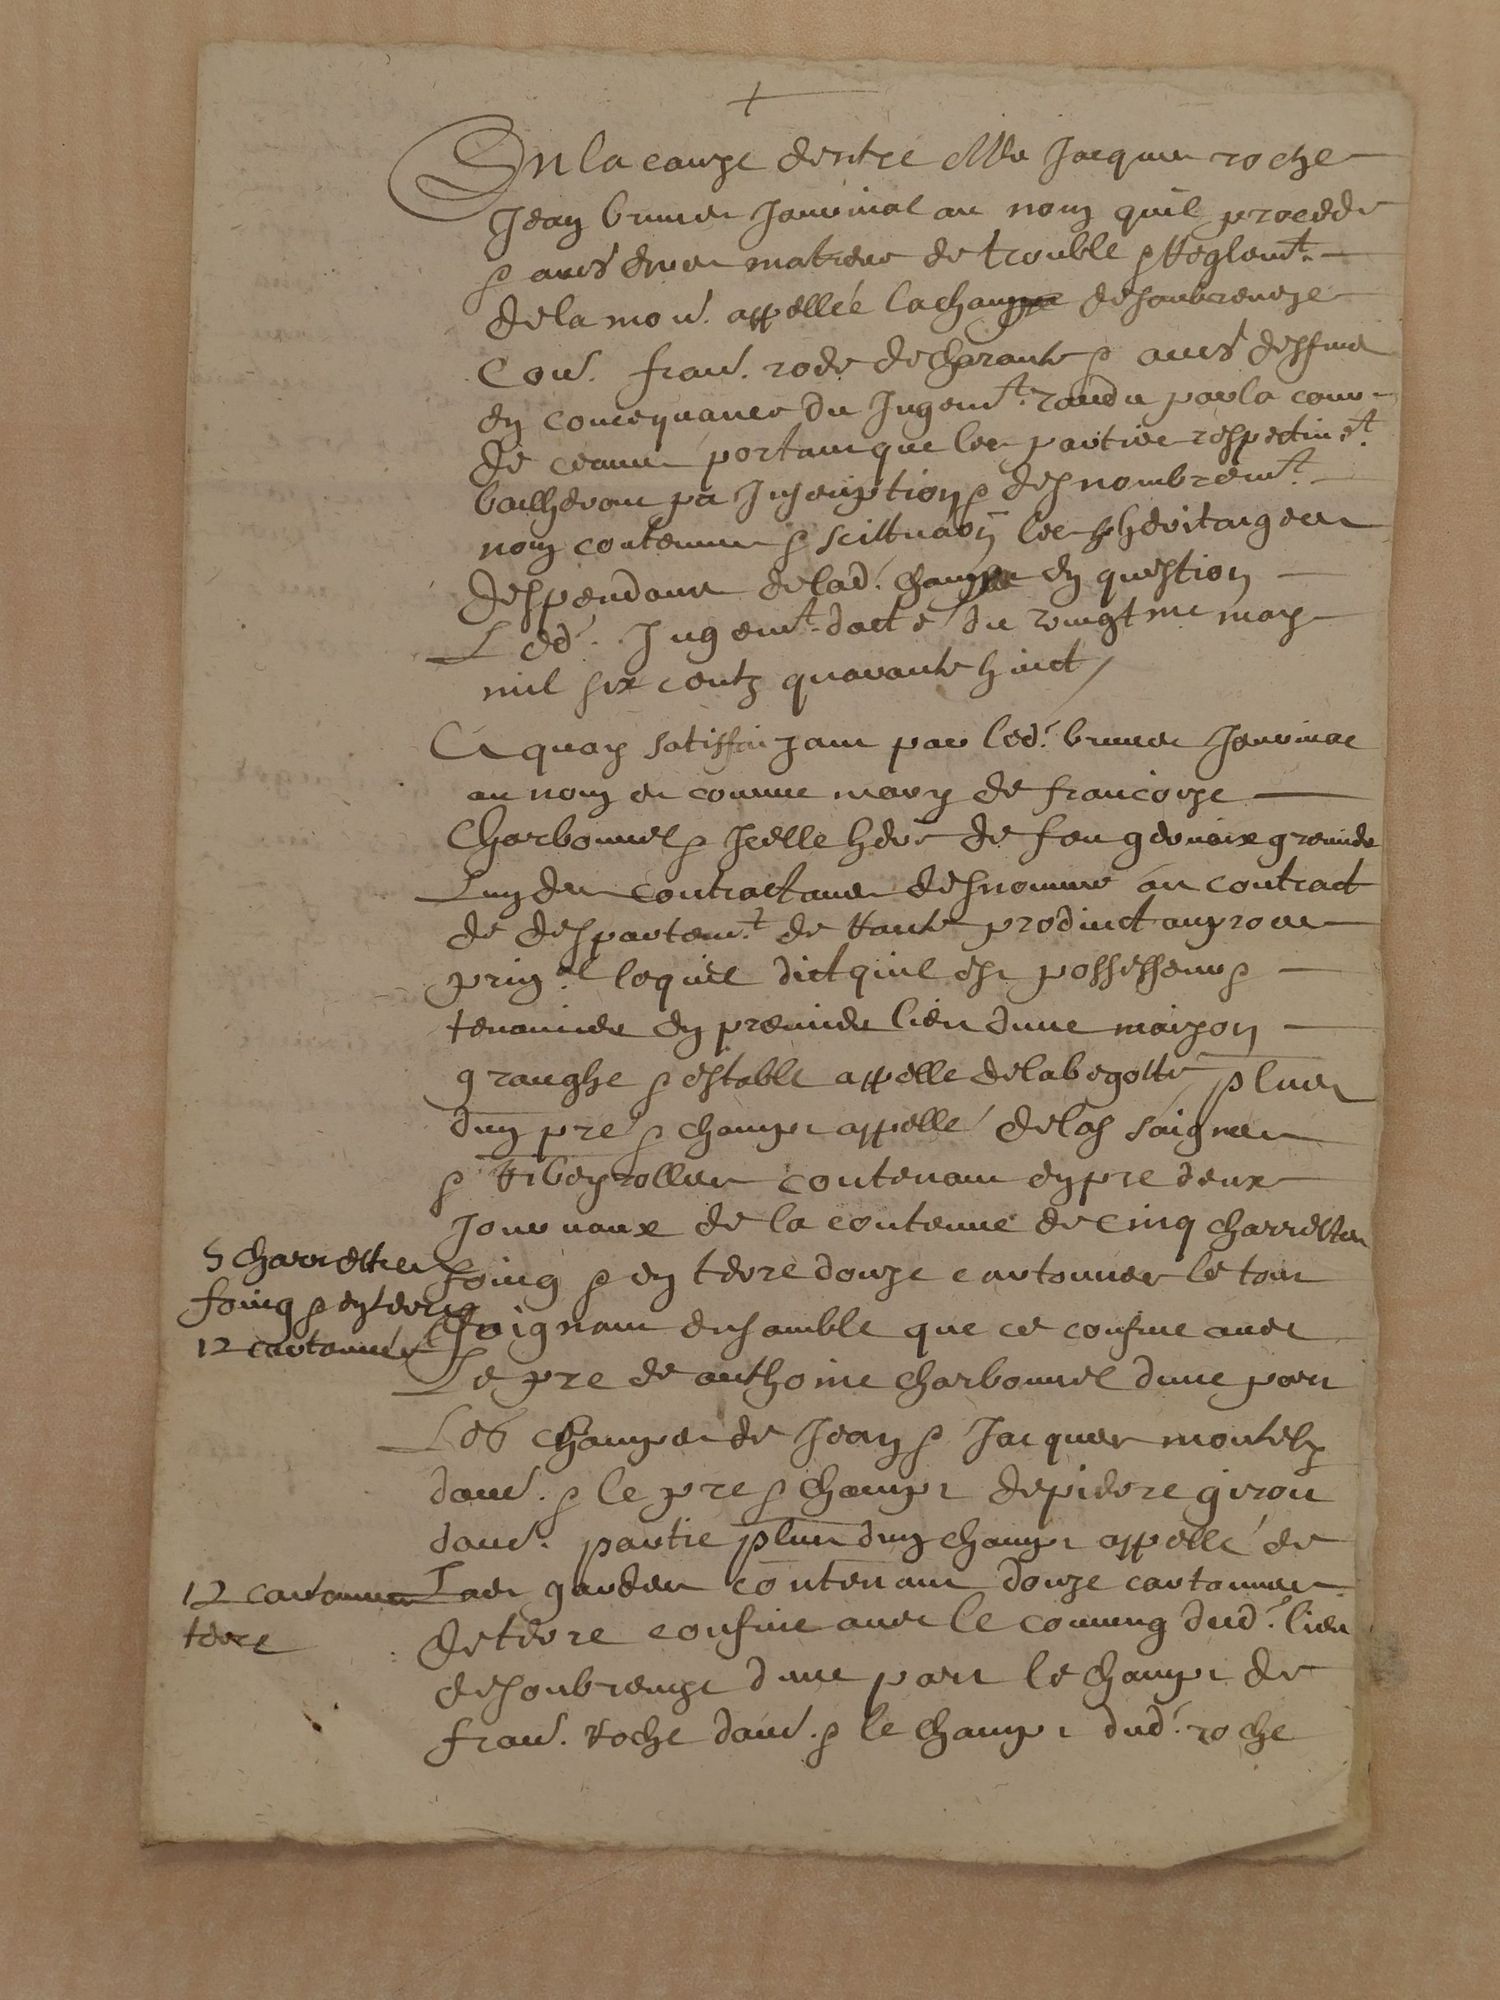 En la cauze dentre Me Jacques roche
Jean bruner Janvinal au nom quil procede
& aues dmer matiere de trouble & Reglemt.
de la mou. appellée la champ desoubreneze
Cou. frau. rode decharante & aues desfuer
en concequance du Jugemt. randu par la cour
de ceanes portant que les parties respectivet.
bailheront pa Inscription & desnombremt.
nom contenues & scittuaon les heritaiges
despendans de lad. champ en question
Led. Jugemt. datte du vingtme may
mil six centz quarante huict
A quoy satisffaizant par led. brunes Janvinal
au nom et comme mary de francoize
Charbonnel & Icelle here de feu grenier
Lun des contractans desnomme au contract
de despartemt. de Rante produict au proces
prinal. lequel dict quil est possesseur &
tenancier en premier lieu dune maizon
granghe & estable appelle de la begotte plus
dun pre & champt appellé delas saignes
& Ribeyrolles contenant en pre deux
Journaux de la contenue de cinq charrettes
foing & en terre douze cartonnes le tout
Joignant ensamble que ce confine avec
Le pre de anthoine charbonnel dune part
Les champs de Jean & Jacques montelz
daue. & le pre & champt de pierre girou
daue. partie plus dun champt appellé de
Las gardes contenant douze cartonnes
de terre confine avec le commung dud. lieu
desoubrenze dune part le champt de
frau. Roche daue. & le champt dud. roche
5 charrettes
foing & en terre
12 cartonnes
12 cartonnes
terre